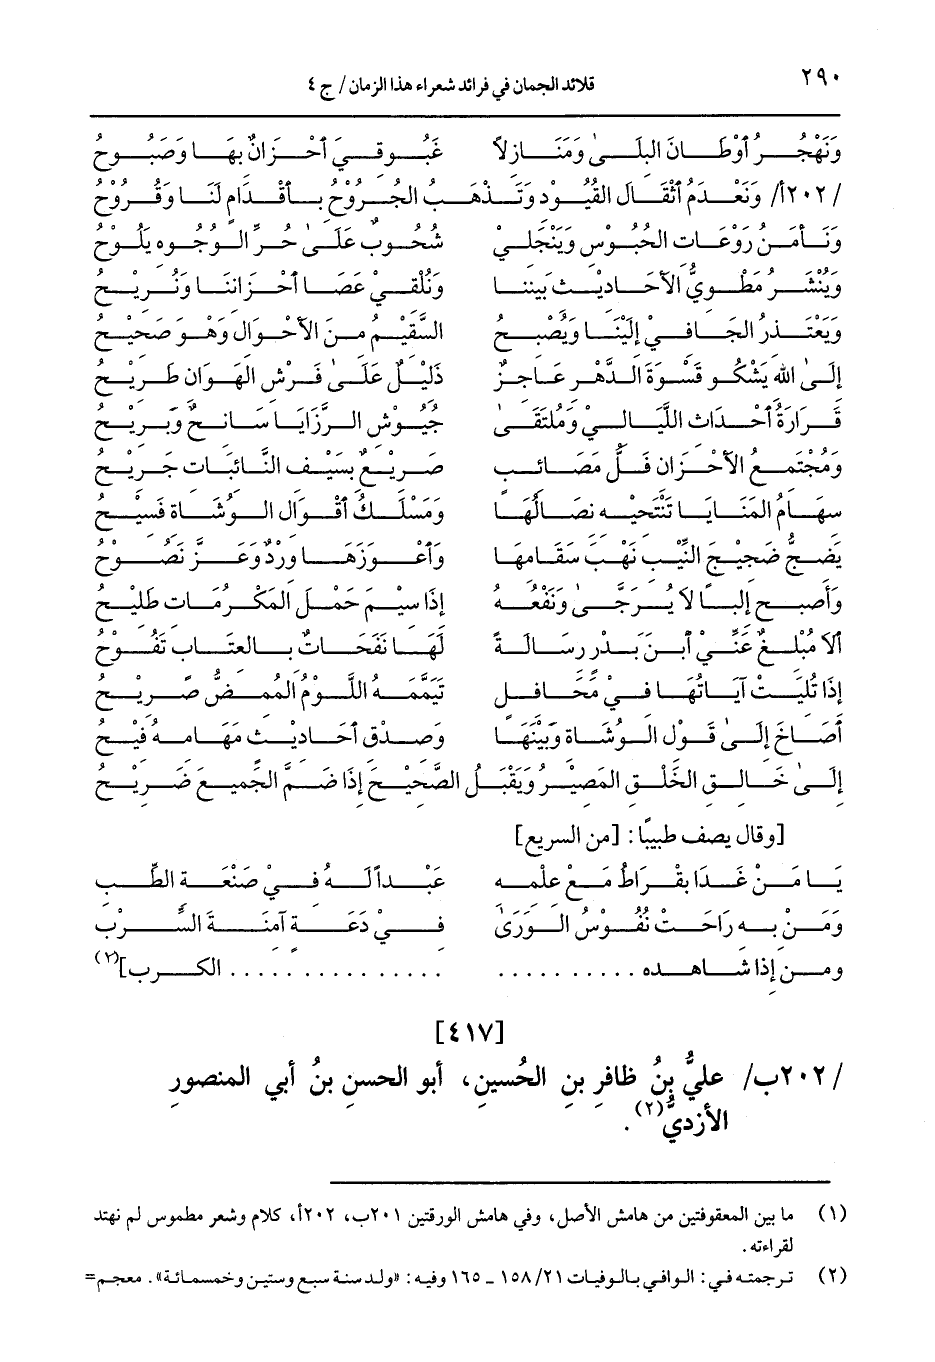 ٢٩٠
قلائد الجمان في فرائد شعراء هذا الزمان / ج ٤
وَنَهْجُرُ أَوْطَانَ البِلَىٰ وَمَنَازِلاً غَبُوقِي أَحْزَانٌ بِهَا وَصَبُوحُ
/ ٢٠٢أ/ وَنَعْدَمُ أَثْقَالَ القُيُودِ وَتَذْهَبُ الجُرُوْحُ بِأَقْدَامٍ لَنَا وَقُرُوْحُ
وَنَأْمَنُ رَوْعَاتِ الحُبُوْسِ وَيَنْجَلِي شُحُوبٌ عَلَىٰ حُرِّ الوُجُوهِ يَلُوْحُ
وَيُنْشَرُ مَطْوِيُّ الأَحَادِيْثِ بَيْنَنَا وَنُلْقِي عَصَا أَحْزَانِنَا وَنُرِيْحُ
وَيَعْتَذِرُ الجَافِيْ إِلَيْنَا وَيُصْبِحُ السَّقِيْمُ مِنَ الأَحْوَالِ وَهْوَ صَحِيْحُ
إِلَىٰ اللهِ يَشْكُو قَسْوَةَ الدَّهْرِ عَاجِزٌ ذَلِيْلٌ عَلَىٰ فَرْشِ الهَوَانِ طَرِيْحُ
قَرَارَةُ أَحْدَاثِ اللَّيَالِيْ وَمُلْتَقَىٰ جُيُوْشِ الرَّزَايَا سَانِحٌ وَبَرِيْحُ
وَمُجْتَمَعُ الأَحْزَانِ فَلُّ مَصَائِبٍ صَرِيْعٌ بِسَيْفِ النَّائِبَاتِ جَرِيْحُ
سِهَامُ المَنَايَا تَنْتَحِيْهِ نِصَالُهَا وَمَسْلَكُ أَقْوَالِ الوُشَاةِ فَسِيْحُ
يَضِجُّ ضَجِيْجَ النِّيْبِ نَهْبَ سَقَامِهَا وَأَعْوَزَهَا وِرْدٌ وَعَزَّ نَصُوْحُ
وَأَصْبَحَ إِلباً لاَ يُرَجَّىٰ وَنَفْعُهُ إِذَا سِيْمَ حَمْلَ المَكْرُمَاتِ طَلِيْحُ
أَلاَ مُبْلِغٌ عَنِّيْ أَبنَ بَدْرٍ رِسَالَةً لَهَا نَفَحَاتٌ بِالعِتَابِ تَفُوْحُ
إِذَا تُلِيَتْ آيَاتُهَا فِيْ مَحَافِلٍ تَيَمَّمَهُ اللَّوْمُ المُمِضُّ صَرِيْحُ
أَصَاخَ إِلَىٰ قَوْلِ الوُشَاةِ وَبَيْنَهَا وَصِدْقِ أَحَادِيْثٍ مَهَامِهُ فِيْحُ
إِلَىٰ خَالِقِ الخَلْقِ المَصِيْرُ وَيَقْبَلُ الصَّحِيْحَ إِذَا ضَمَّ الجَمِيعَ ضَرِيْحُ
[وقال يصف طبيبًا: [من السريع]
يَا مَنْ غَدَا بقْرَاطُ مَعْ عِلْمِهِ عَبْداً لَهُ فِيْ صَنْعَةِ الطِّبِ
وَمَنْ بِهِ رَاحَتْ نُفُوْسُ الوَرَىٰ فِيْ دَعَةٍ آمِنَةَ السِّرْبِ
ومن إذا شاهده . . . . . . . . . . . . . . . . . . . . . . . . . الكرب](٢)
[٤١٧]
/ ٢٠٢ب/ عليُّ بنُ ظافرِ بنِ الحُسينِ، أبو الحسنِ بنُ أبي المنصورِ
الأزديُّ(٢).
(١) ما بين المعقوفتين من هامش الأصل، وفي هامش الورقتين ٢٠١ب، ٢٠٢أ، كلام وشعر مطموس لم نهتد
لقراءته.
(٢) ترجمته في: الوافي بالوفيات ٢١/ ١٥٨ - ١٦٥ وفيه: «ولد سنة سبع وستين وخمسمائة». معجم=